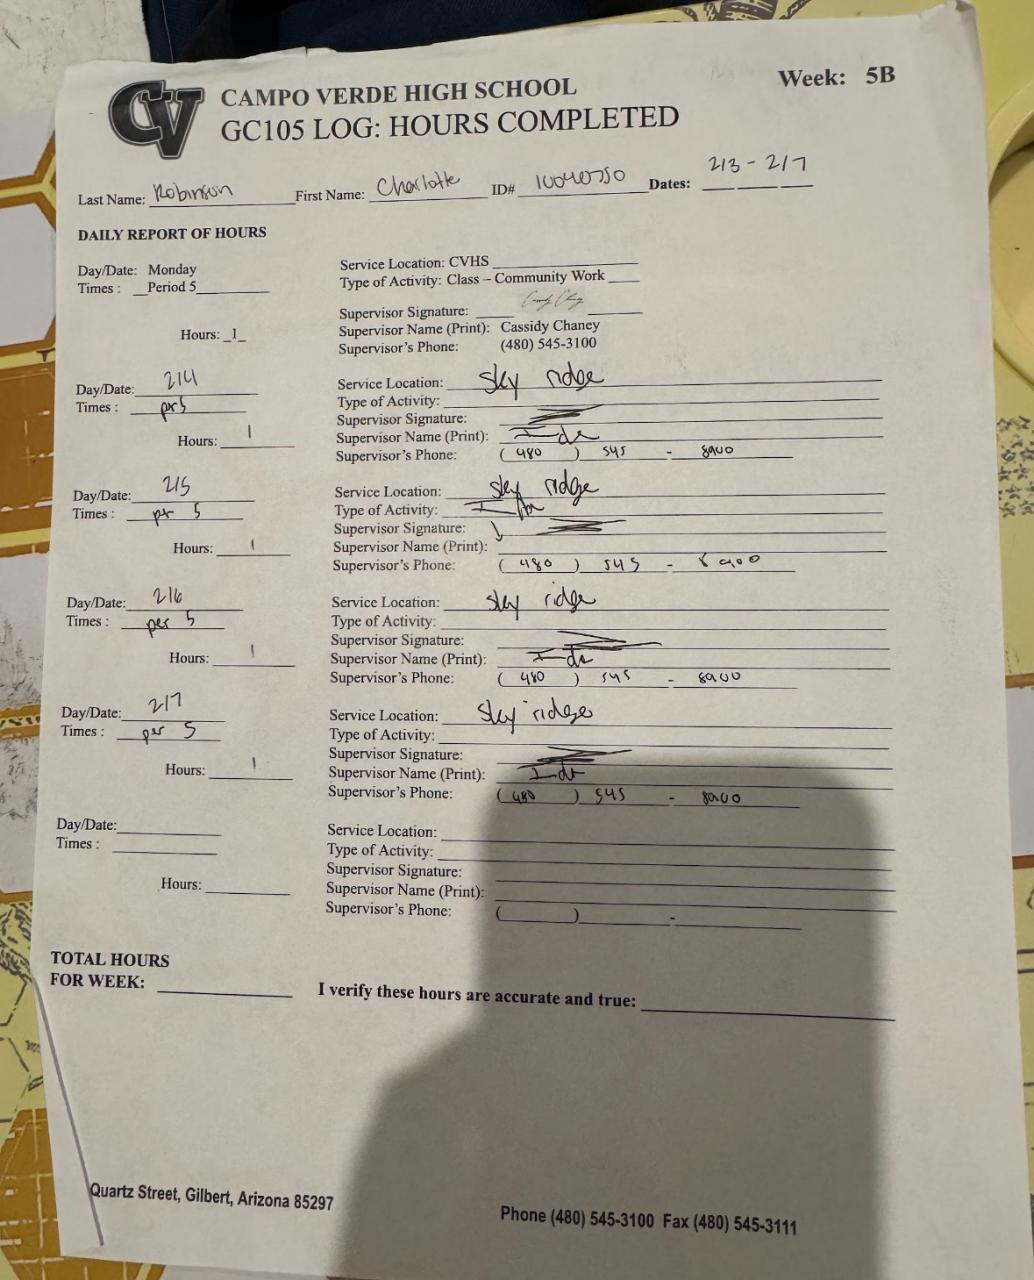 CV
CAMPO VERDE HIGH SCHOOL
Week: 5B
GC105 LOG: HOURS COMPLETED
Last Name: Robinson First Name: Charlotte ID# 10040750 Dates: 2/3 - 2/7
DAILY REPORT OF HOURS
Day/Date: Monday
Times : Period 5
Hours: 1
Service Location: CVHS
Type of Activity: Class – Community Work
Supervisor Signature:
Supervisor Name (Print): Cassidy Chaney
Supervisor's Phone: (480) 545-3100
Day/Date: 2/4
Times : per 5
Hours: 1
Service Location: Sky ridge
Type of Activity:
Supervisor Signature:
Supervisor Name (Print):
Supervisor's Phone: (480) 545 - 8900
Day/Date: 2/5
Times : per 5
Hours: 1
Service Location: Sky ridge
Type of Activity:
Supervisor Signature:
Supervisor Name (Print):
Supervisor's Phone: (480) 545 - 8900
Day/Date: 2/6
Times : per 5
Hours: 1
Service Location: Sky ridge
Type of Activity:
Supervisor Signature:
Supervisor Name (Print):
Supervisor's Phone: (480) 545 - 8900
Day/Date: 2/7
Times : per 5
Hours: 1
Service Location: Sky ridge
Type of Activity:
Supervisor Signature:
Supervisor Name (Print):
Supervisor's Phone: (480) 545 - 8900
Day/Date:
Times :
Hours:
Service Location:
Type of Activity:
Supervisor Signature:
Supervisor Name (Print):
Supervisor's Phone: ( ) -
TOTAL HOURS
FOR WEEK:
I verify these hours are accurate and true:
Quartz Street, Gilbert, Arizona 85297
Phone (480) 545-3100 Fax (480) 545-3111